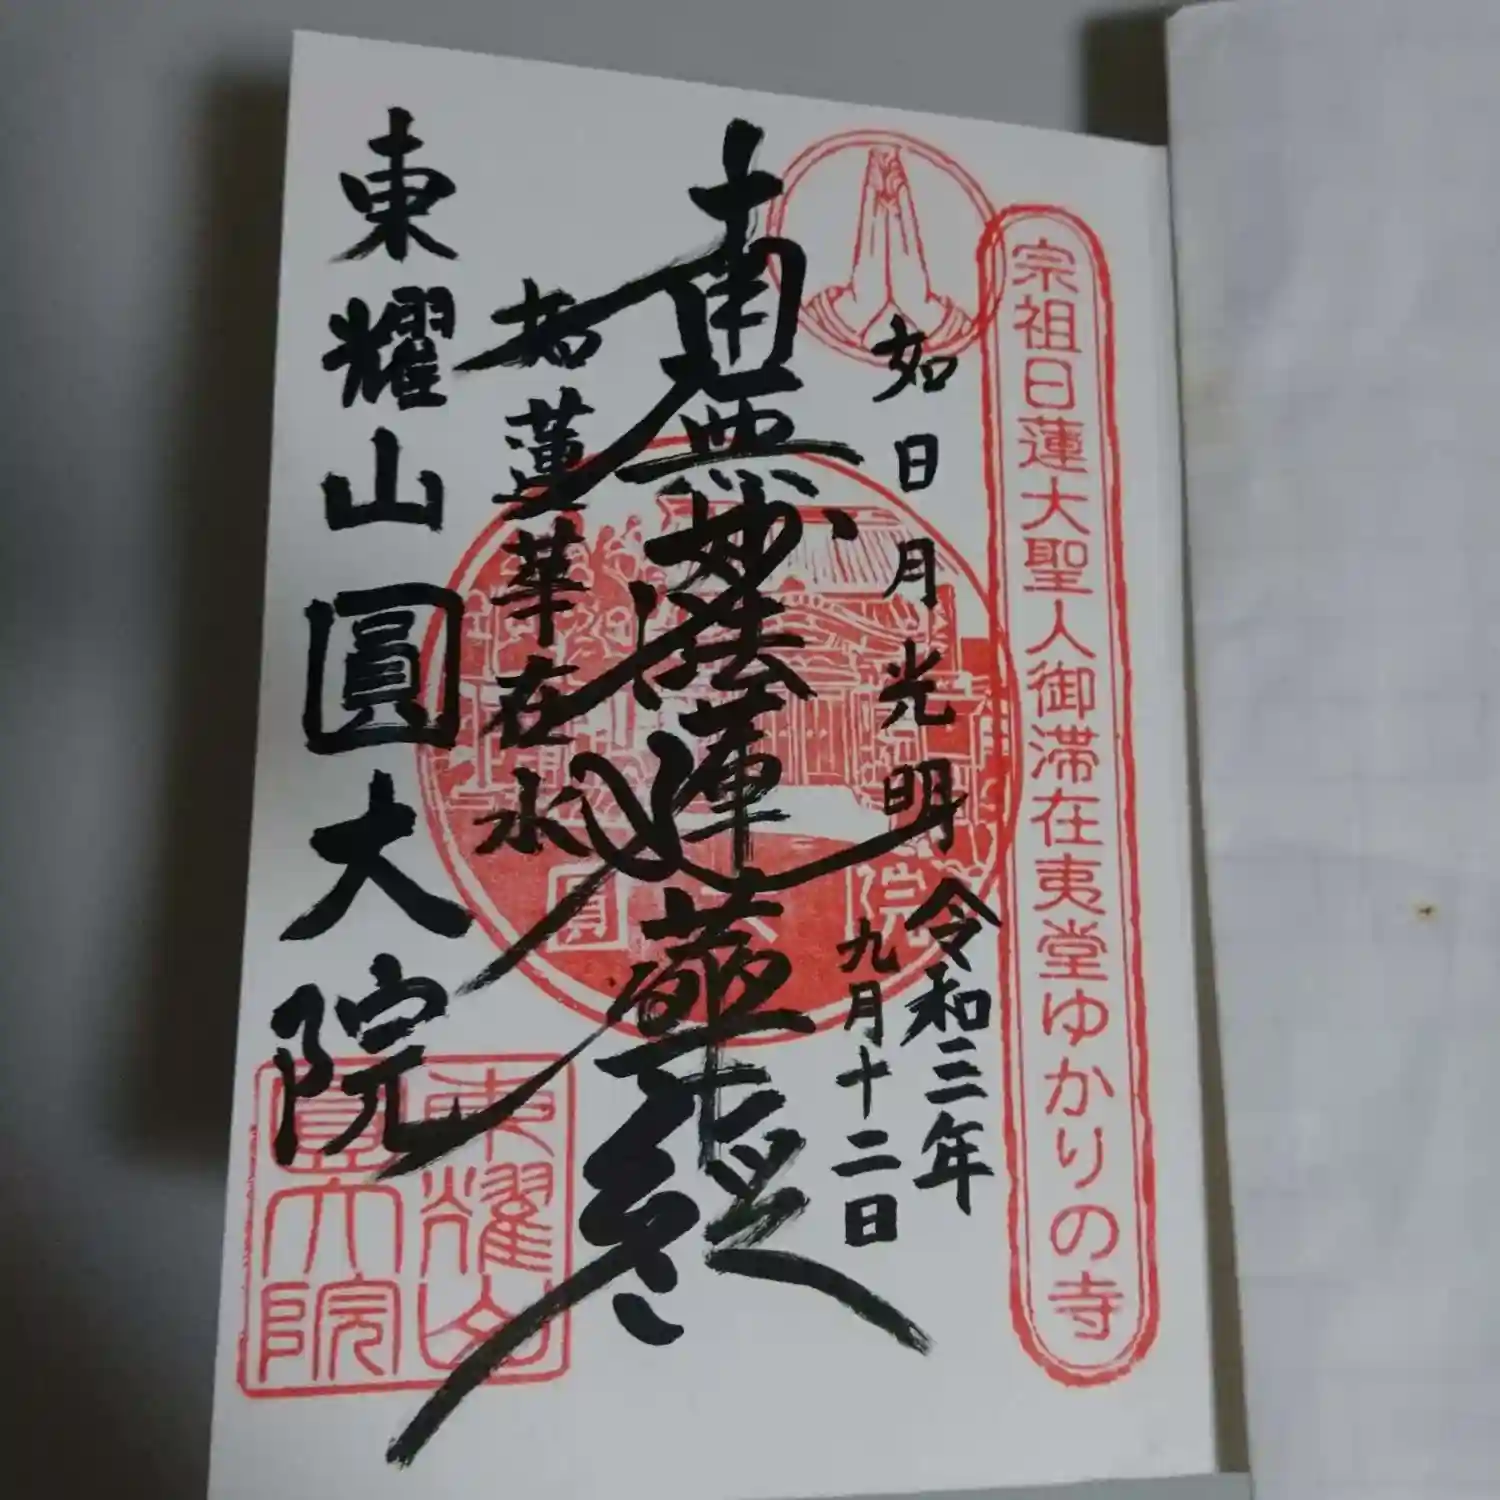 宗祖日蓮大聖人御滞在夷堂ゆかりの寺
如日月光明
令和三年
九月十二日
南無妙法蓮華経
如蓮華在水
東耀山圓大院
圓大院
東耀山
圓大院